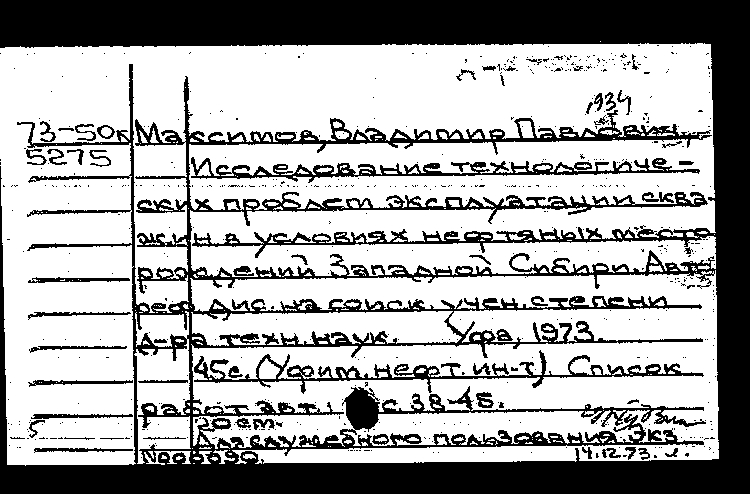 1934
73-50к Максимов, Владимир Павлович.
5275
Исследование технологиче-
ских проблем эксплуатации сква-
жин в условиях нефтяных место-
рождений Западной Сибири. Авто-
реф. дис. на соиск. учен. степени
д-ра техн. наук. Уфа, 1973.
45с. (Уфим. нефт. ин-т). Список
работ авт.: с. 38-45.
20 см.
5 Для служебного пользования. Экз
№000090.
14.12.73.